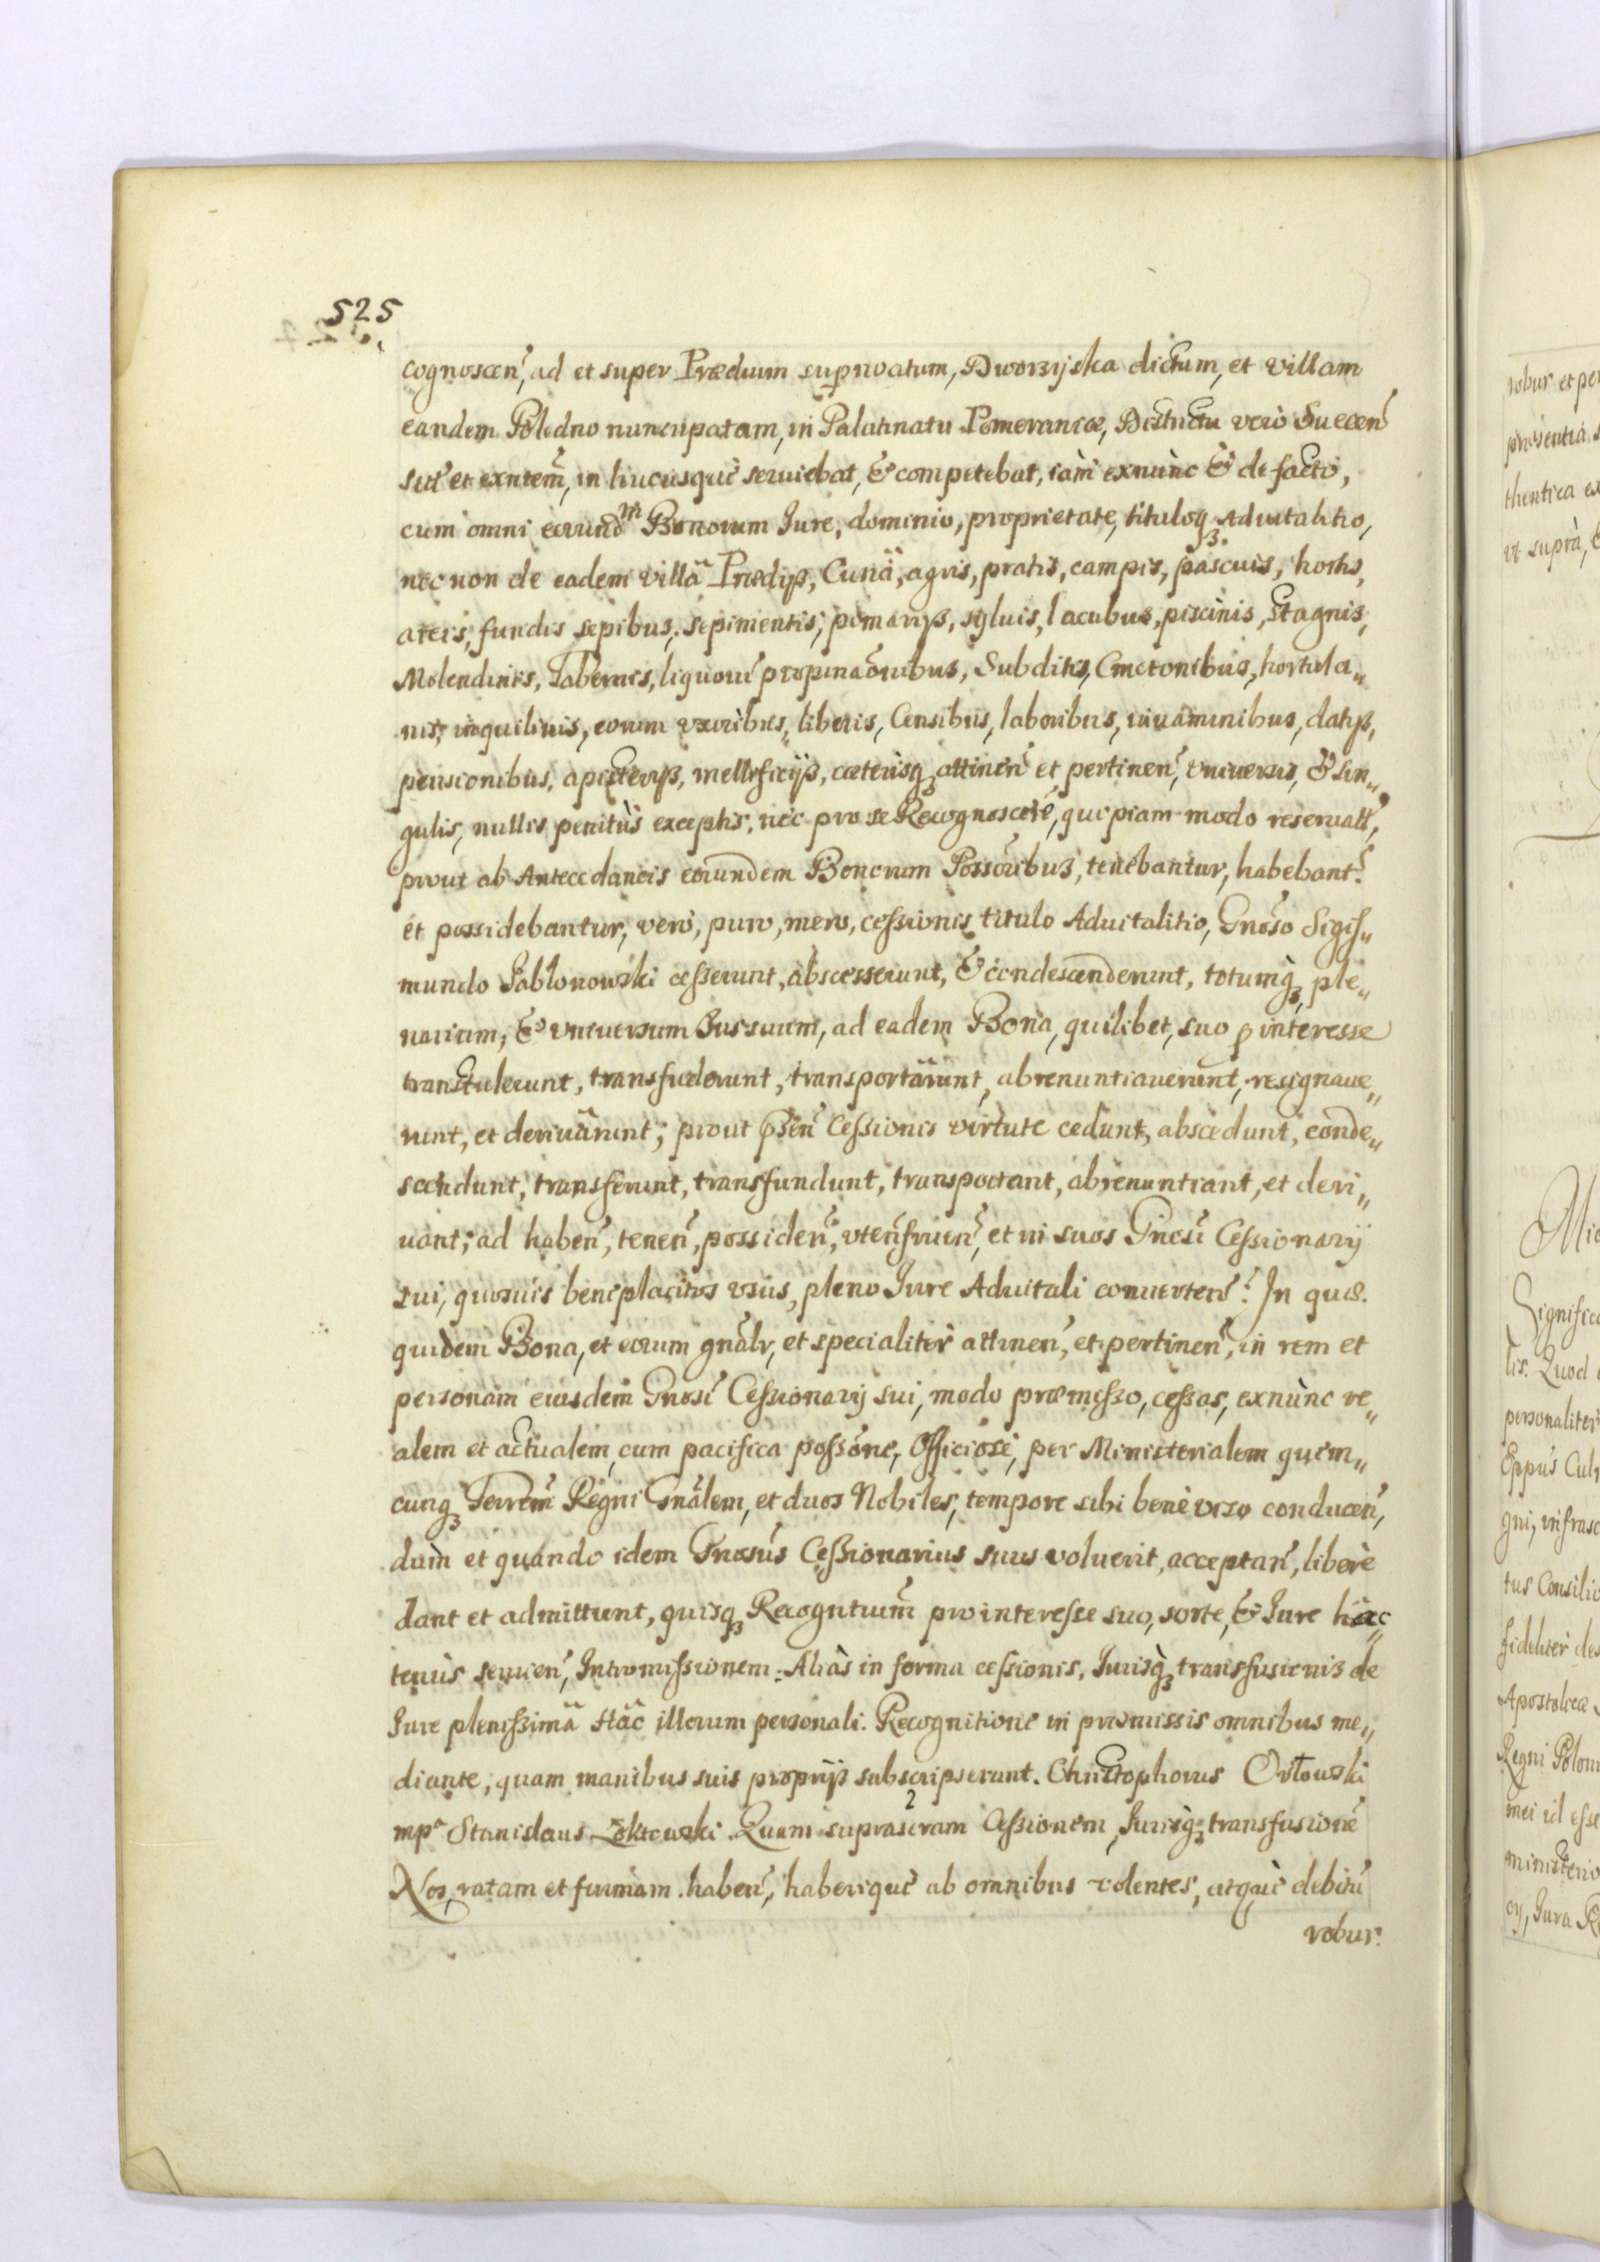 525
cognoscen̄, ad et super Prædium supnoatum, Dworzyska dictum, et villam
eandem Poledno nuncupatam, in Palatinatu Pomeraniæ, Districtu verò Suecen̄
sitt et exntem̄, in hucusquè seruiebat, & competebat, iàm exnùnc & de facto,
cum omni eorundm Bonorum Jure, dominio, proprietate, tituloqꝫ Aduitalitio,
nec non de eadem villâ Prædijs, Curiâ, agris, pratis, campis, pascuis, hortis,
areis, fundis sepibus, sepimentis, pomarijs, syluis, lacubus, piscinis, Stagnis,
Molendinis, Tabernis, liquorū propinaōnibus, Subditis, Cmetonibus, hortula„
nis, inquilinis, eorum vxoribus, liberis, Censibus, laboribus, iuuaminibus, datijs,
pensionibus, apisterijs, mellificijs, cæterisqꝫ attinen̄ et pertinen̄, vniuersis, & sin„
gulis, nullis penitùs exceptis, nec pro se Recognoscere, quipiam modo reseruatt,
prout ab Antecedaneis eorundem Bonorum Possōribus, tenebantur, habebant̄
et possidebantur, vero, puro, mero, cessionis titulo Aduitalitio, Gnoso Sigis„
mundo Jabłonowski cesserunt, abscesserunt, & condescenderunt, totumqꝫ ple„
narium, & vniuersum Jus suum, ad eadem Bona, quilibet, suo p interesse
transtulerunt, transfuderunt, transportârunt, abrenuntiauerunt, resignaue„
runt, et deriuârunt; prout p̄sen̄ Cessionis virtute cedunt, abscedunt, conde„
scendunt, transferunt, transfundunt, transportant, abrenuntiant, et deri„
uant; ad haben̄, tenen̄, possiden̄, vten̄fruen̄, et in suos Gnosi Cessionarij
sui, quosuis beneplacitos vsus, pleno Jure Aduitali conuerten̄. In quæ
quidem Bona, et eorum gnālr, et specialitèr attinen̄, et pertinen̄, in rem et
personam eiusdem Gnosi Cessionarij sui, modo præmisso, cessas, exnùnc re„
alem et actualem, cum pacifica possōne, Officiosè, per Ministerialem quem„
cunqꝫ Terrem̄ Regni Gnālem, et duos Nobiles, tempore sibi benè viso conducen̄,
dum et quando idem Gnosus Cessionarius suus voluerit, acceptan̄, liberè
dant et admittunt, quisqꝫ Recogntium̄ pro interesse suo, sorte, & Jure hac„
tenùs seruien̄, Intromissionem. Aliàs in forma cessionis, Jurisqꝫ transfusionis de
Jure plenissimâ Hâc illorum personali Recognitione in præmissis omnibus me„
diante, quam manibus suis proprijs subscripserunt. Christophorus Orłowski
mpa Stanislaus Zoktowski. Quam suprascram Cessionem, Jurisqꝫ transfusionē
Nos, ratam et firmam haben̄, haberiquè ab omnibus volentes, atquè debitū
robur.